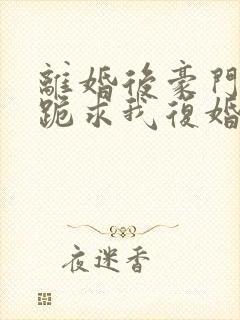 離婚後豪門
跪求我復婚
夜迷香